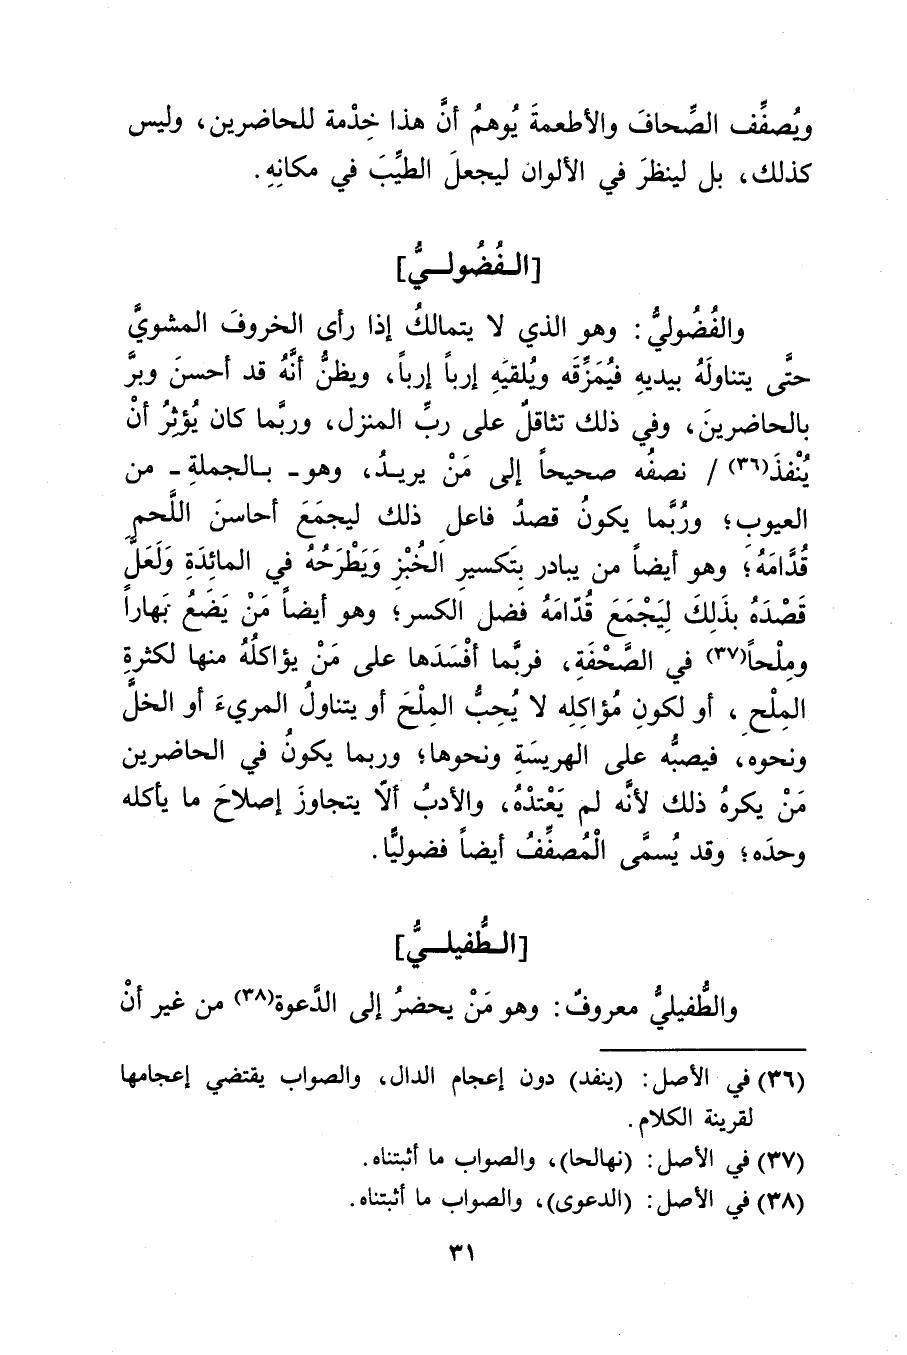 ويُصفِّف الصِّحافَ والأطعمةَ يُوهمُ أنَّ هذا خِدْمة للحاضرين، وليس
كذلك، بل لينظرَ في الألوان ليجعلَ الطيِّبَ في مكانِهِ.
[الفُضُوليُّ]
والفُضُوليُّ: وهو الذي لا يتمالكُ إذا رأى الخروفَ المشويَّ
حتَّى يتناولَهُ بيديهِ فيُمَزِّقَه ويُلقيَه إرباً إرباً، ويظنُّ أنَّهُ قد أحسنَ وبرَّ
بالحاضرينَ، وفي ذلك تثاقلٌ على ربِّ المنزل، وربَّما كان يُؤثِرُ أنْ
يُنْفذَ(٣٦) / نصفُه صحيحاً إلى مَنْ يريدُ، وهو - بالجملةِ - من
العيوب؛ ورُبَّما يكونُ قصدُ فاعلِ ذلك ليجمَعَ أحاسنَ اللَّحمِ
قُدَّامَهُ؛ وهو أيضاً من يبادر بتَكسيرِ الخُبْزِ وَيَطْرَحُهُ في المائِدَةِ وَلَعَلَّ
قَصْدَهُ بذَلِكَ لِيَجْمَعَ قُدّامَهُ فضل الكسر؛ وهو أيضاً مَنْ يَضَعُ بَهاراً
ومِلْحاً(٣٧) في الصَّحْفَةِ، فربَّما أفْسَدَها على مَنْ يؤاكلُهُ منها لكثرةِ
المِلْحِ، أو لكونِ مُؤاكِلِه لا يُحِبُّ المِلْحَ أو يتناولُ المريءَ أو الخلَّ
ونحوه، فيصبُّه على الهريسَةِ ونحوها؛ وربما يكونُ في الحاضرين
مَنْ يكرهُ ذلك لأنَّه لم يَعْتدْهُ، والأدبُ ألّا يتجاوزَ إصلاحَ ما يأكله
وحدَه؛ وقد يُسمَّى الْمُصفِّفُ أيضاً فضوليًّا.
[الطُّفيليُّ]
والطُّفيليُّ معروفٌ: وهو مَنْ يحضرُ إلى الدَّعوة(٣٨) من غير أنْ
(٣٦) في الأصل: (ينفد) دون إعجام الدال، والصواب يقتضي إعجامها
لقرينة الكلام.
(٣٧) في الأصل: (نهالحا)، والصواب ما أثبتناه.
(٣٨) في الأصل: (الدعوى)، والصواب ما أثبتناه.
٣١